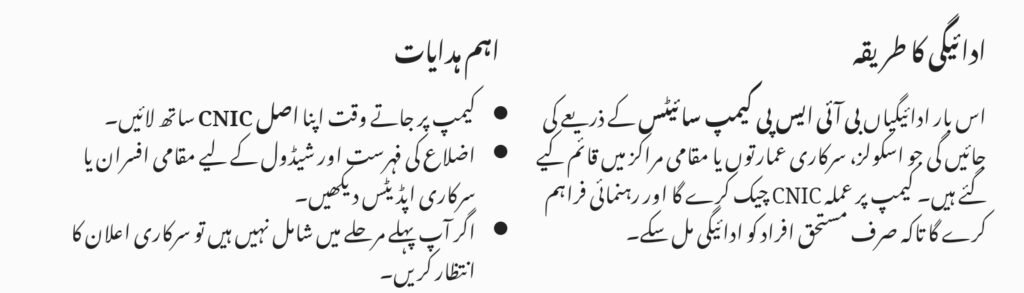 ادائیگی کا طریقہ
اس بار ادائیگیاں بی آئی ایس پی کیمپ سائیٹس کے ذریعے کی
جائیں گی جو اسکولز، سرکاری عمارتوں یا مقامی مراکز میں قائم کیے
گئے ہیں۔ کیمپ پر عملہ CNIC چیک کرے گا اور رہنمائی فراہم
کرے گا تاکہ صرف مستحق افراد کو ادائیگی مل سکے۔
اہم ہدایات
• کیمپ پر جاتے وقت اپنا اصل CNIC ساتھ لائیں۔
• اضلاع کی فہرست اور شیڈول کے لیے مقامی افسران یا
سرکاری اپڈیٹس دیکھیں۔
• اگر آپ پہلے مرحلے میں شامل نہیں ہیں تو سرکاری اعلان کا
انتظار کریں۔